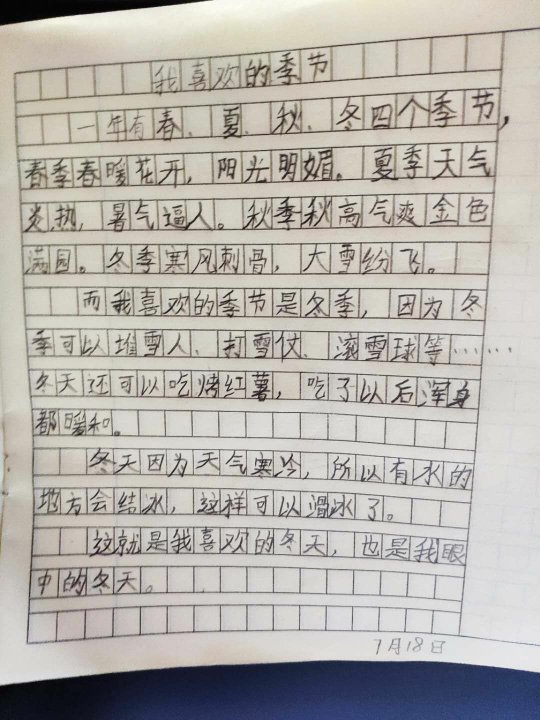 我喜欢的季节
一年有春、夏、秋、冬四个季节,
春季春暖花开,阳光明媚。夏季天气
炎热,暑气逼人。秋季秋高气爽金色
满园。冬季寒风刺骨,大雪纷飞。
而我喜欢的季节是冬季,因为冬
季可以堆雪人、打雪仗、滚雪球等……
冬天还可以吃烤红薯,吃了以后浑身
都暖和。
冬天因为天气寒冷,所以有水的
地方会结冰,这样可以滑冰了。
这就是我喜欢的冬天,也是我眼
中的冬天。
7月18日